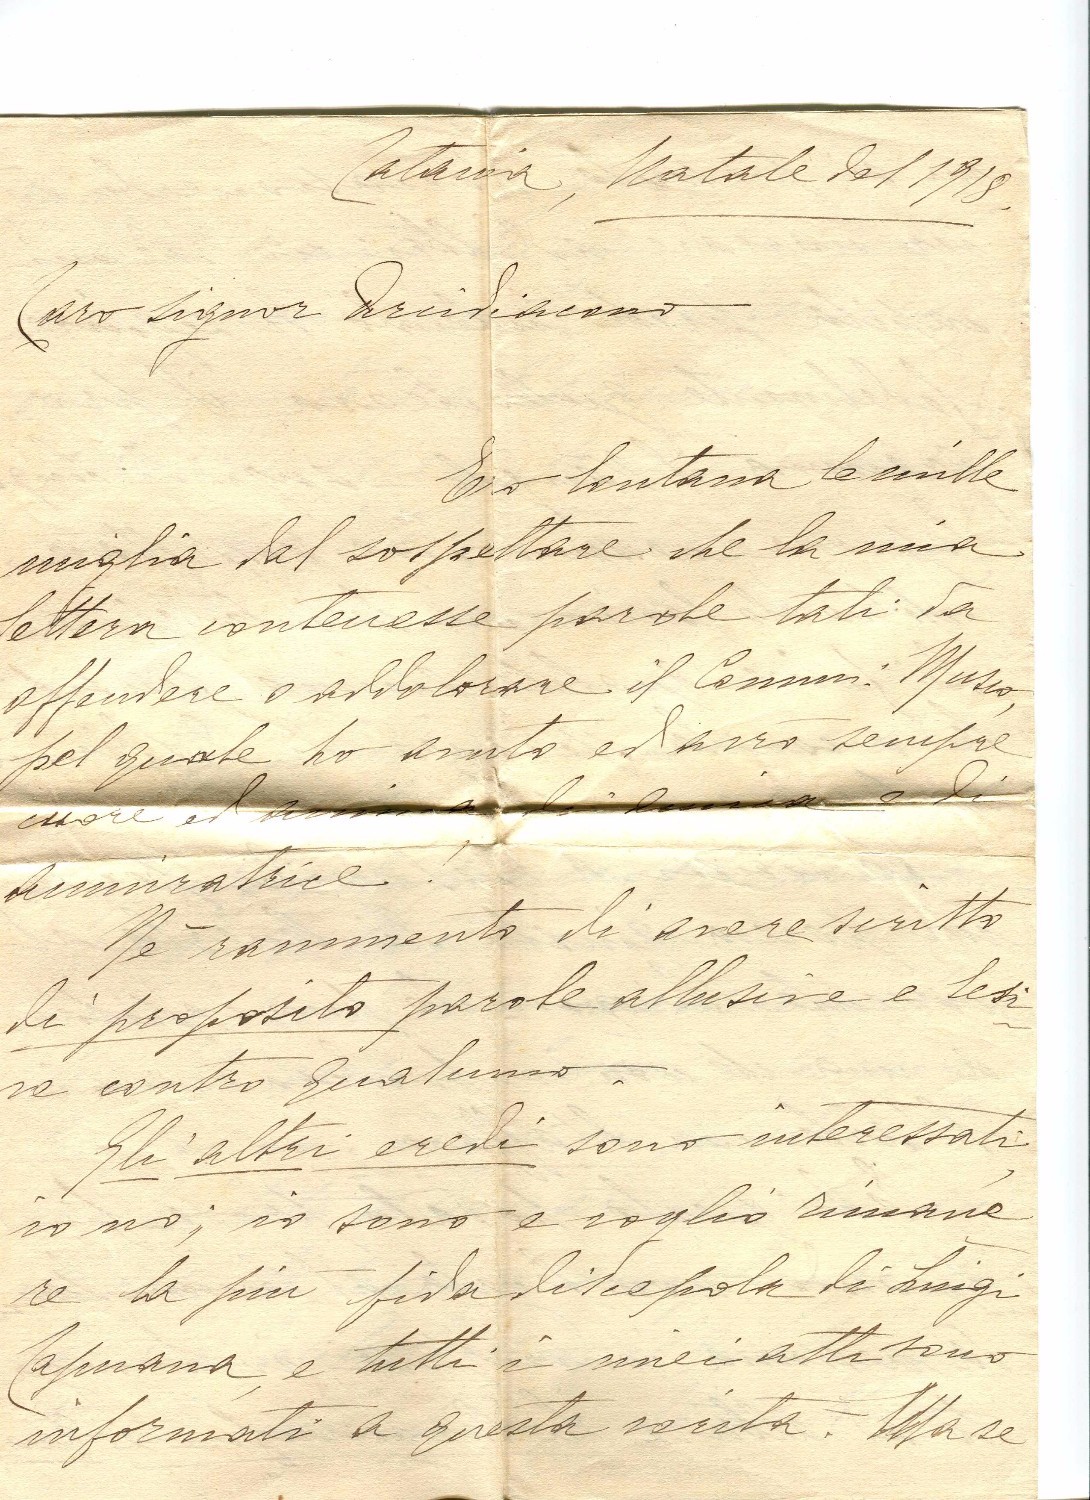 Catania, Natale del 1918.
Caro signor Arcidiacono
Ero lontana le mille
miglia dal sospettare che la mia
lettera contenesse parole tali da
offendere o addolorare il Comm: Musco,
pel quale ho avuto ed avrò sempre
cuore ed anima di amica e di
ammiratrice!
Nè rammento di avere scritto
di proposito parole allusive e lesi-
ve contro qualcuno.
Gli altri eredi sono interessati,
io no; io sono e voglio rimane
re la più fida discepola di Luigi
Capuana, e tutti i miei atti sono
informati a questa verità. Ma se